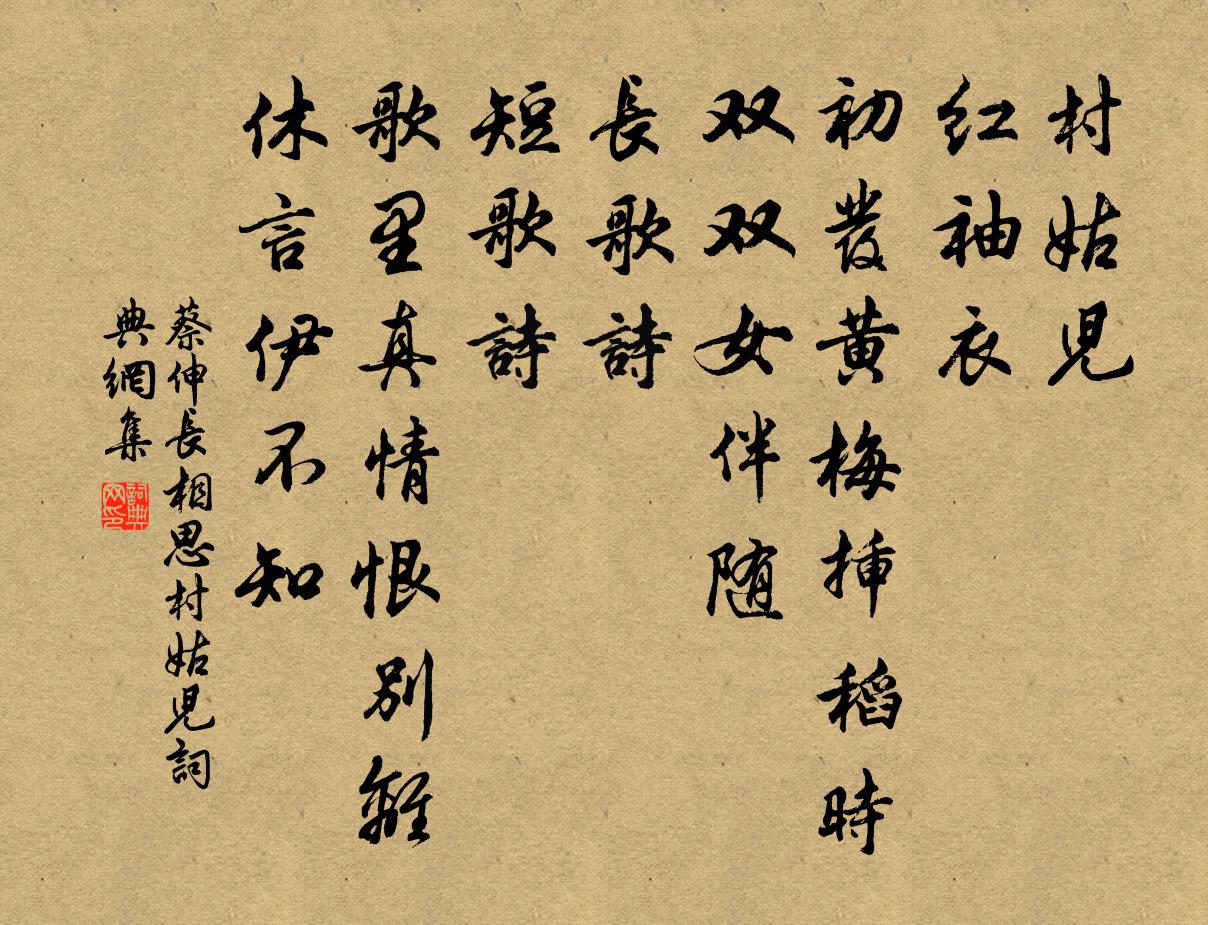 村姑児
红袖衣
初發黄梅挿稻時
双双女伴随
長歌詩
短歌詩
歌里真情恨别離
休言伊不知
蔡伸長相思村姑児詞
典網集
詞典
网印